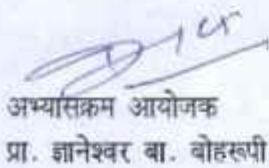 अभ्यासक्रम आयोजक
प्रा. ज्ञानेश्वर बा. बोहरूपी